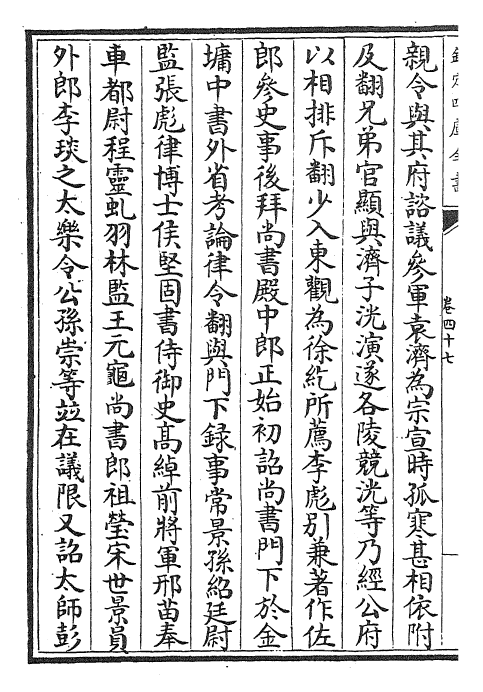 欽定四庫全書
卷四十七
親令與其府諮議參軍袁濟為宗宣時孤寒甚相依附
及翻兄弟官顯與濟子洸演遂各陵競洸等乃經公府
以相排斥翻少入東觀為徐紇所薦李彪别兼著作佐
郎參史事後拜尚書殿中郎正始初詔尚書門下於金
墉中書外省考論律令翻與門下録事常景孫紹廷尉
監張彪律博士侯堅固書侍御史髙綽前將軍邢苗奉
車都尉程靈虬羽林監王元龜尚書郎祖瑩宋世景員
外郎李琰之太樂令公孫崇等竝在議限又詔太師彭